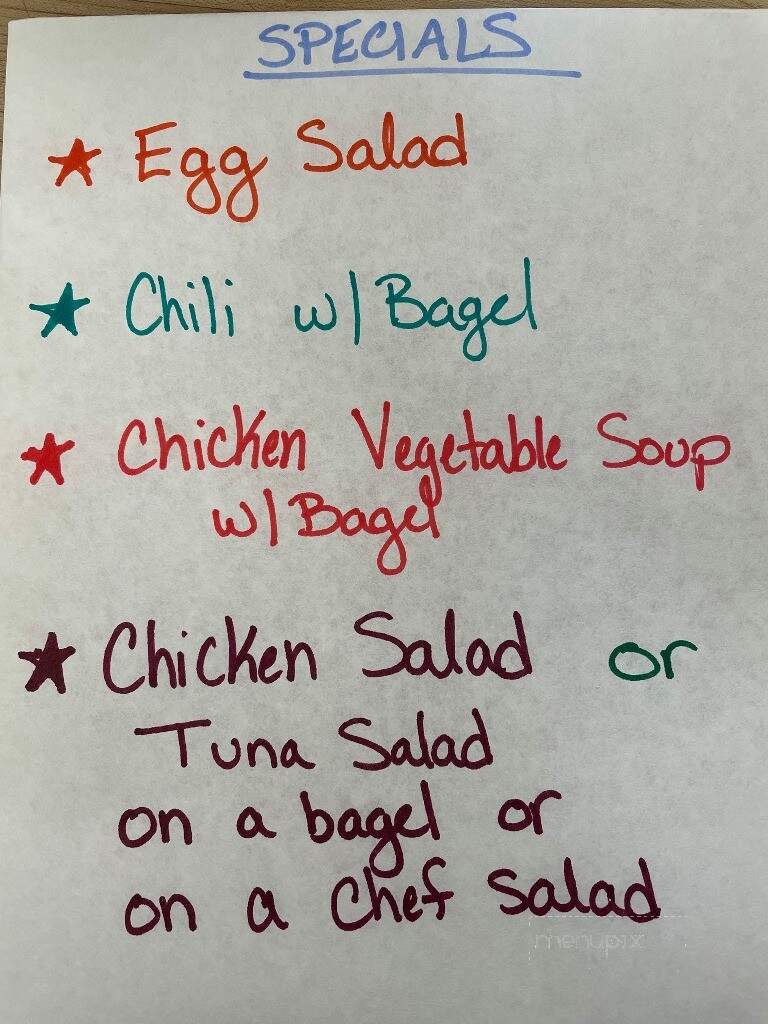 SPECIALS
★ Egg Salad
★ Chili w/ Bagel
★ Chicken Vegetable Soup
w/ Bagel
★ Chicken Salad or
Tuna Salad
on a bagel or
on a chef salad
menupix